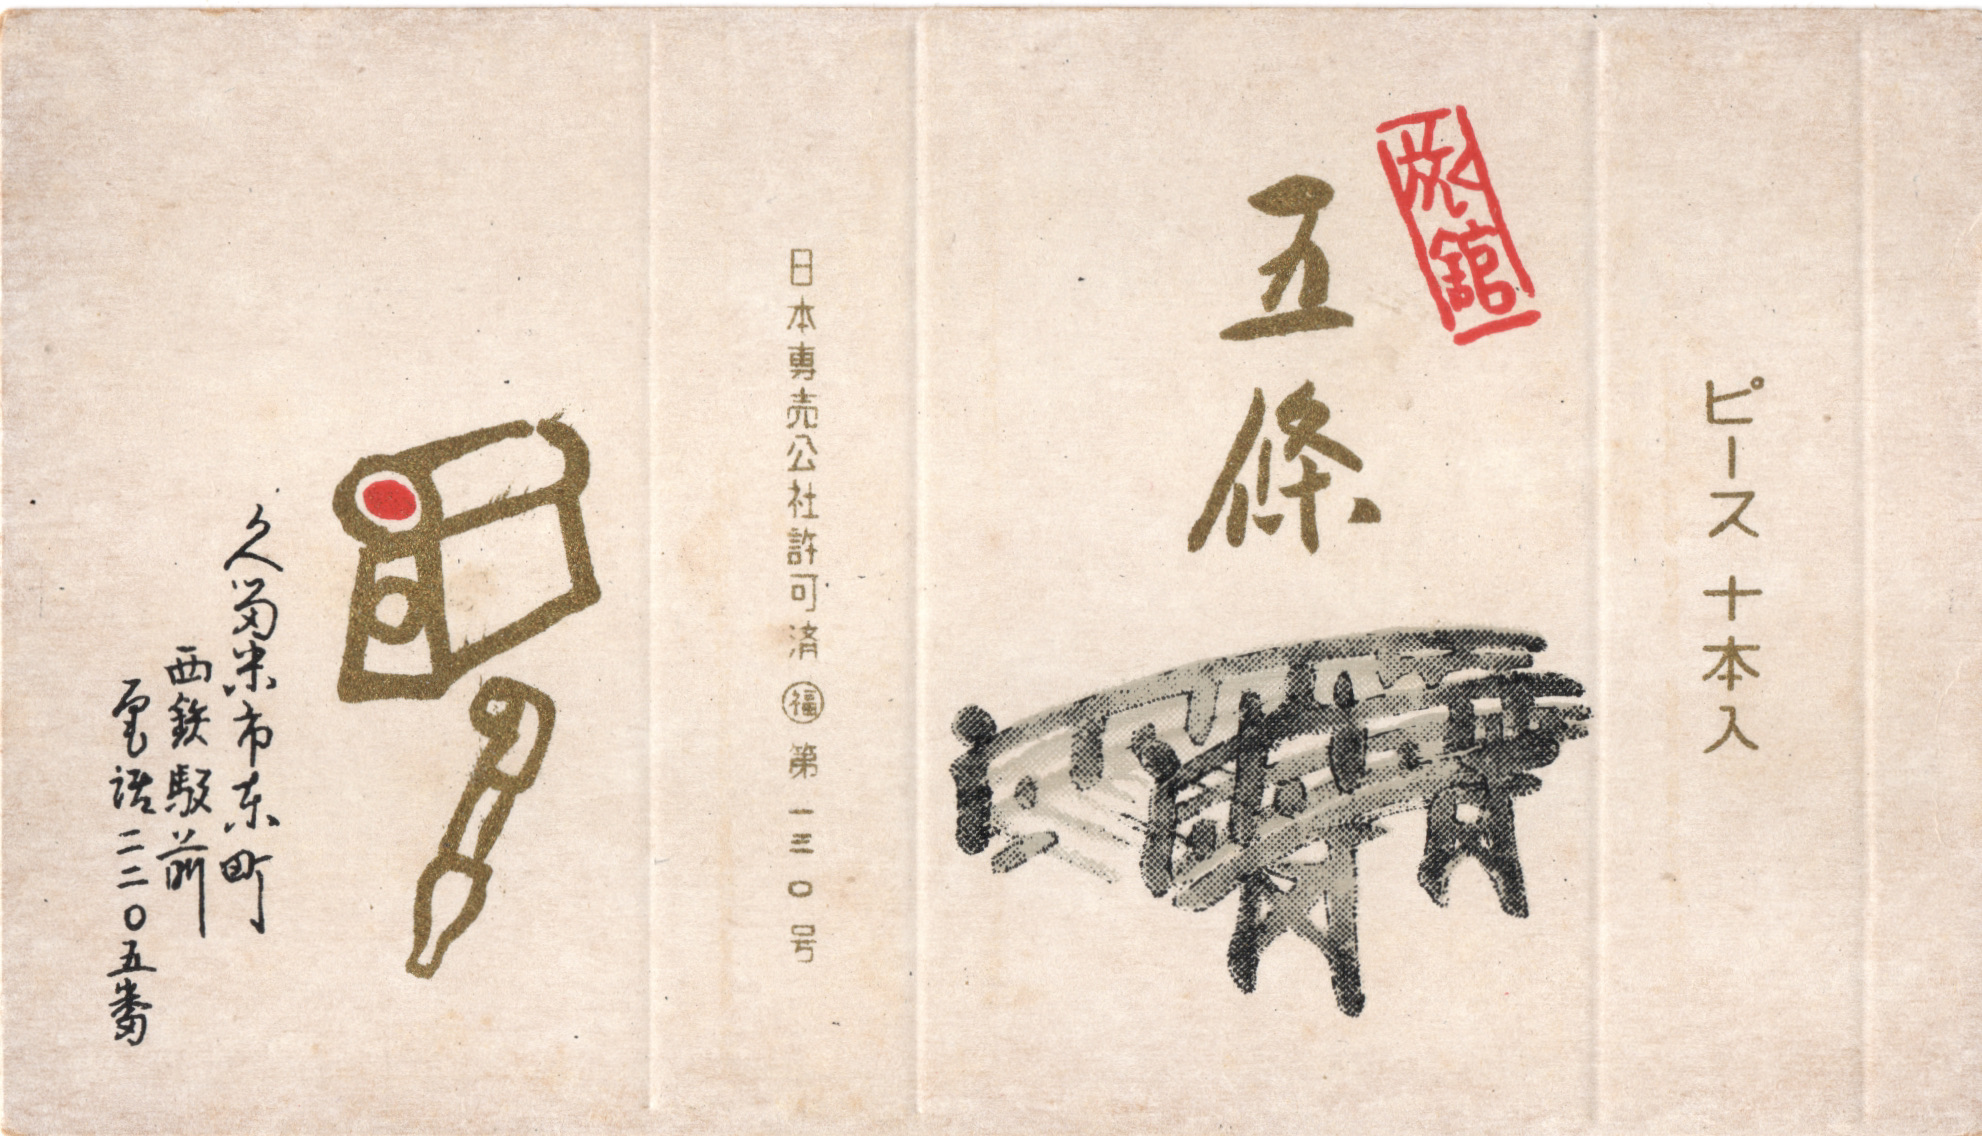 ピース 十本入
旅館
五條
日本専売公社許可済 ㊕福 第一三〇号
久留米市東町
西鉄駅前
電話二二〇五番